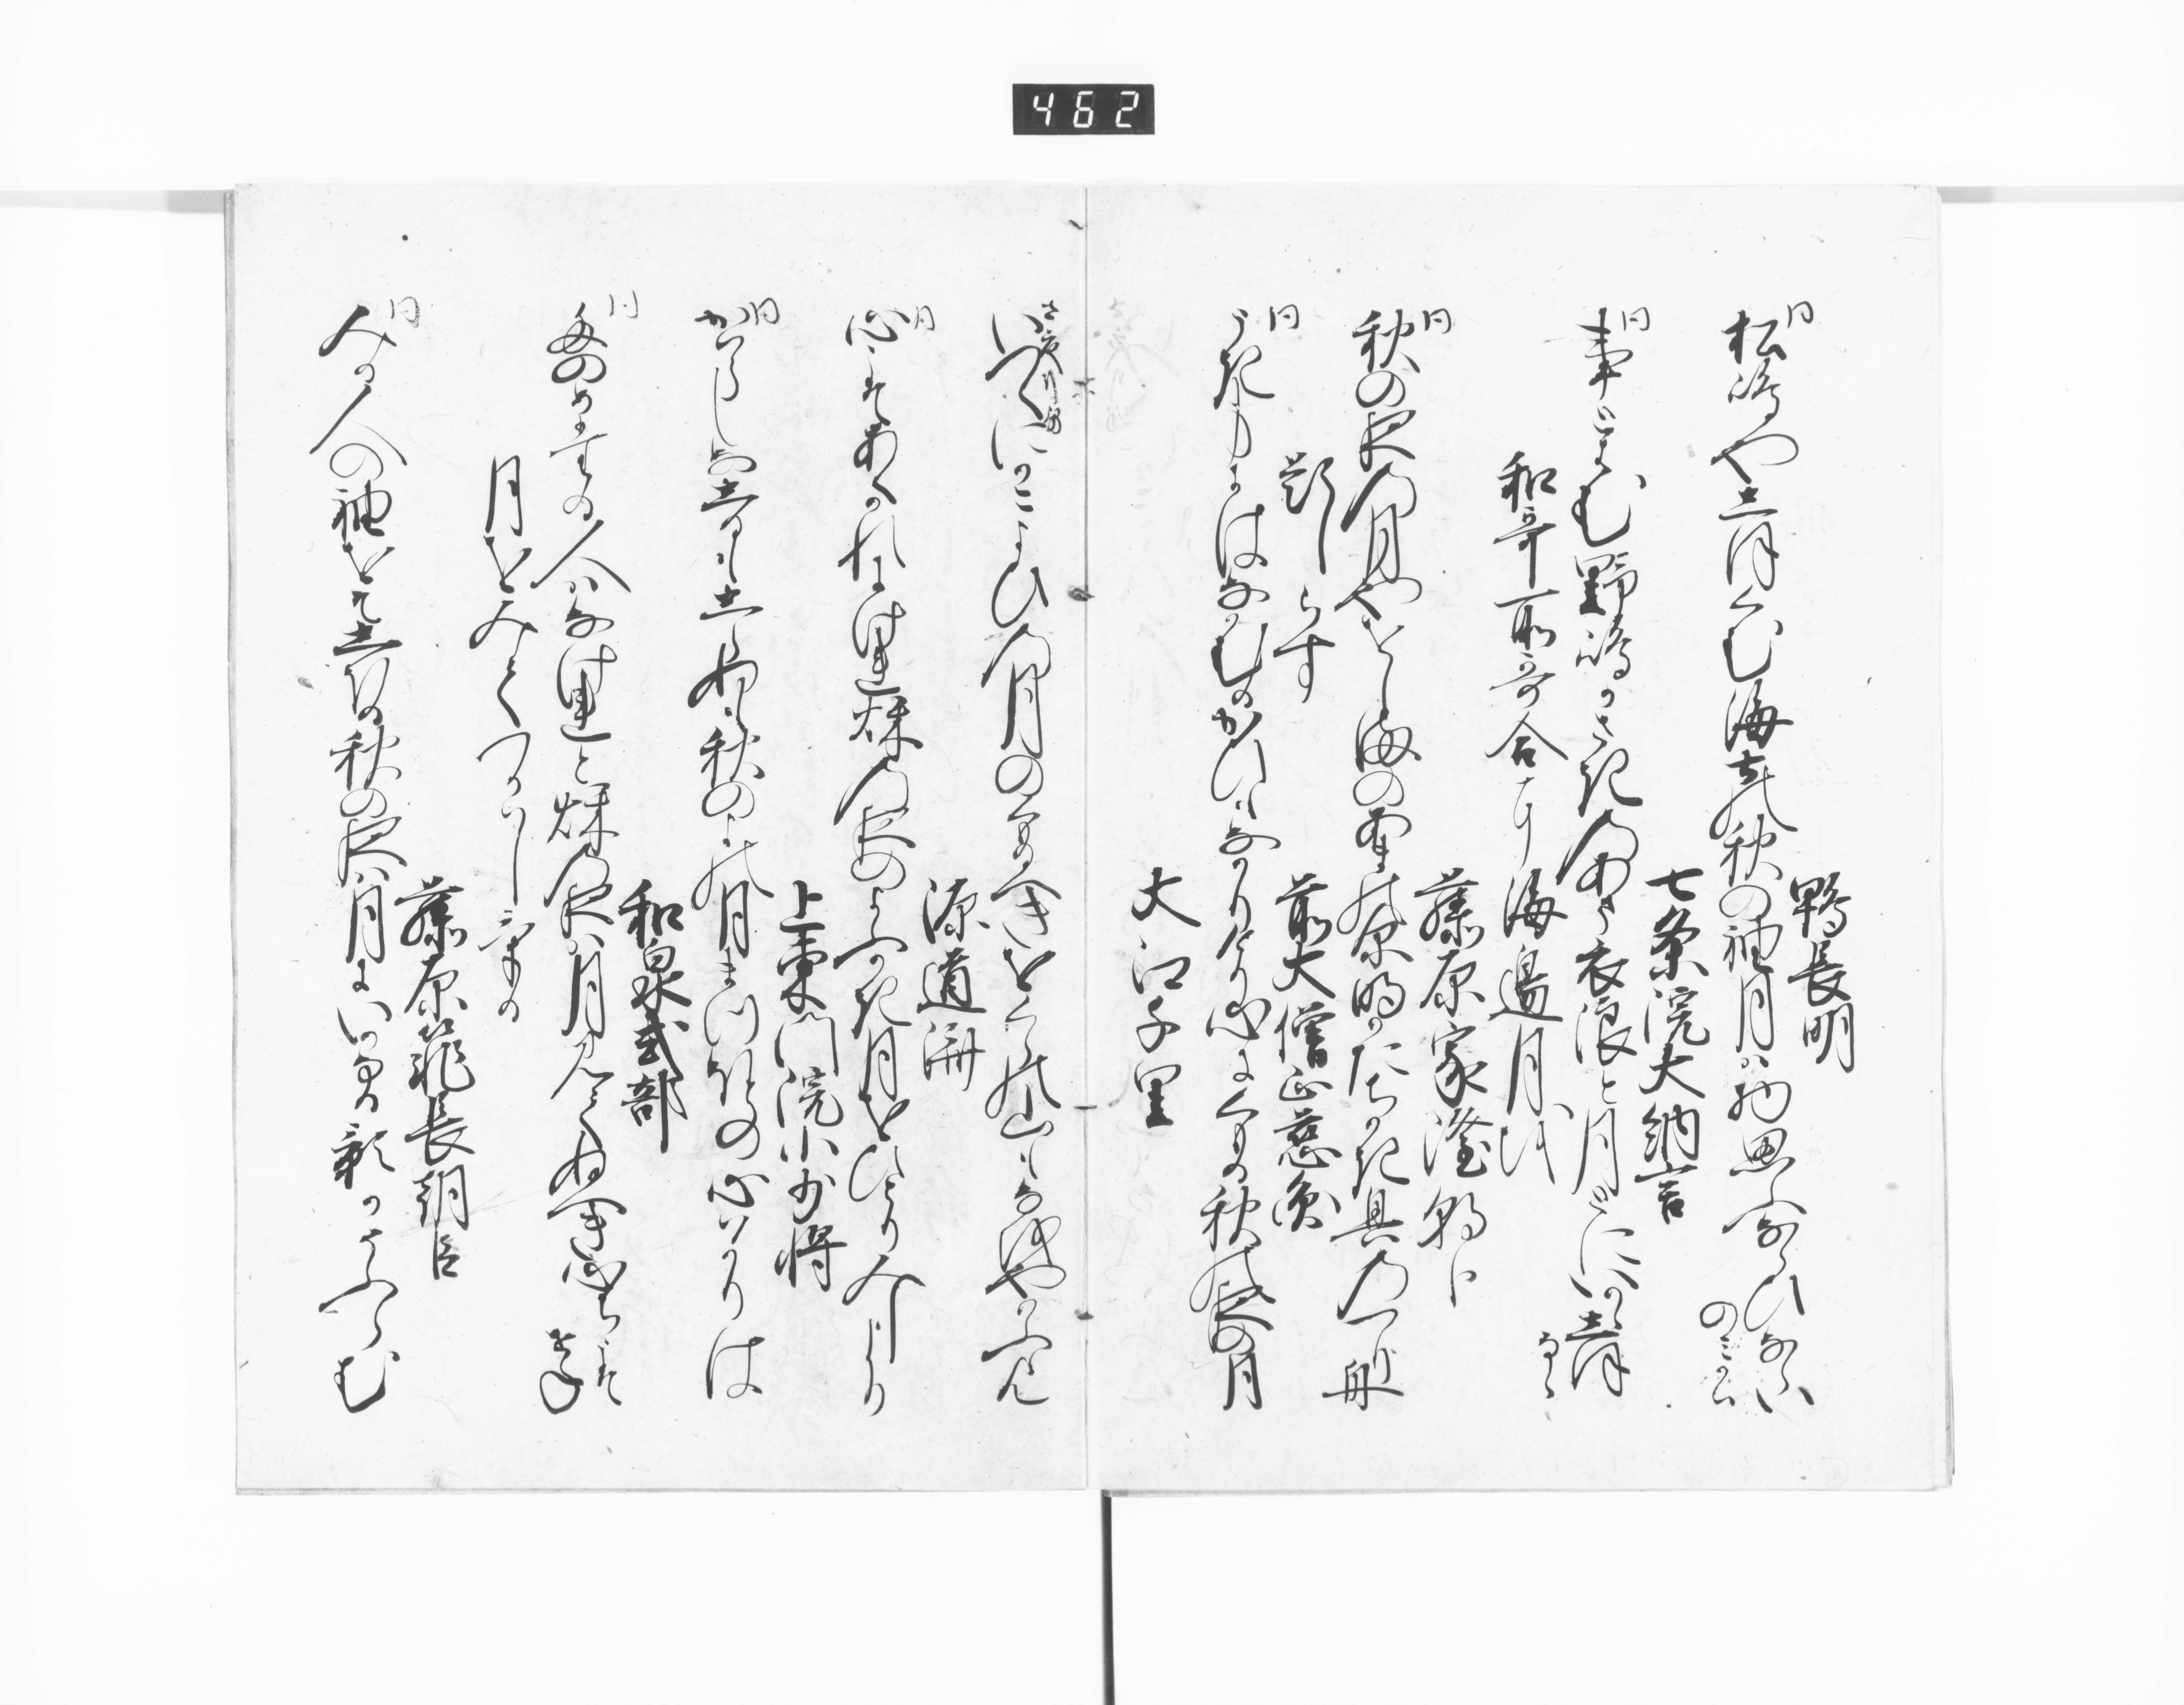 462
鴨長明
同
松嶋や志月くむ海士の秋の袖月は物思ふならひ
のミかは
七条院大納言
同
事とはむ野嶋かさきのあま衣浪と月とにいかゝ志月
るゝ
和哥所哥合に海邊月を
藤原家隆朝臣
同
秋の夜の月やをしまのあまの原明かたちかき奥の釣舟
題しらす
前大僧正慈円
同
うき身にはなかむるかひもなかりけり心にくもる秋の夜の月
大江千里
いつくにかこよひの月のくもるへきをくらの山も名をやかふらん
源道済
同
心こそあくかれにけれ秋の夜の夜ふかき月をひとりみしより
上東門院小少将
同
かはらしな志るも志らぬも秋のよの月まつほとの心はかりは
和泉式部
同
たのめたる人はなけれと秋の夜は月見てぬへき心ちこそ
せね
月をみてつかはしける
藤原範長朝臣
同
みる人の袖をそ志ほる秋の夜は月にいかなる影かそふらむ